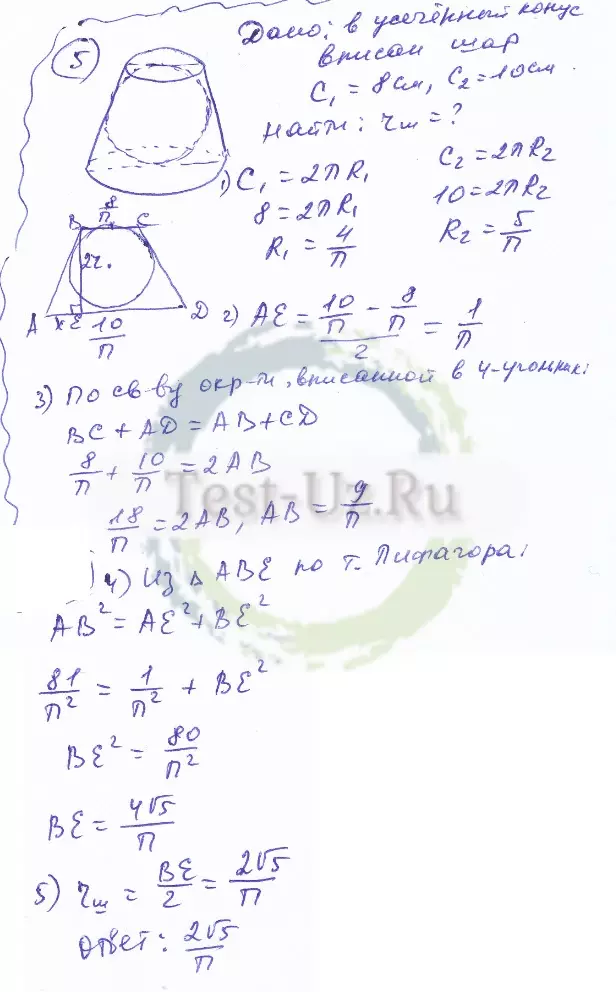 5
Дано: в усечённый конус
вписан шар
C₁ = 8 см, C₂ = 10 см.
Найти: rш = ?
1) C₁ = 2ПR₁
8 = 2ПR₁
R₁ = 4/П
C₂ = 2ПR₂
10 = 2ПR₂
R₂ = 5/П
8/П
B C
2r.
A x E D
10/П
2) AE = (10/П - 8/П)/2 = 1/П
3) По св-ву окр-ти, вписанной в 4-угольник:
BC + AD = AB + CD
8/П + 10/П = 2AB
18/П = 2AB, AB = 9/П
4) Из Δ ABE по т. Пифагора:
AB² = AE² + BE²
81/П² = 1/П² + BE²
BE² = 80/П²
BE = 4√5/П
5) rш = BE/2 = 2√5/П
Ответ: 2√5/П
Test-Uz.Ru